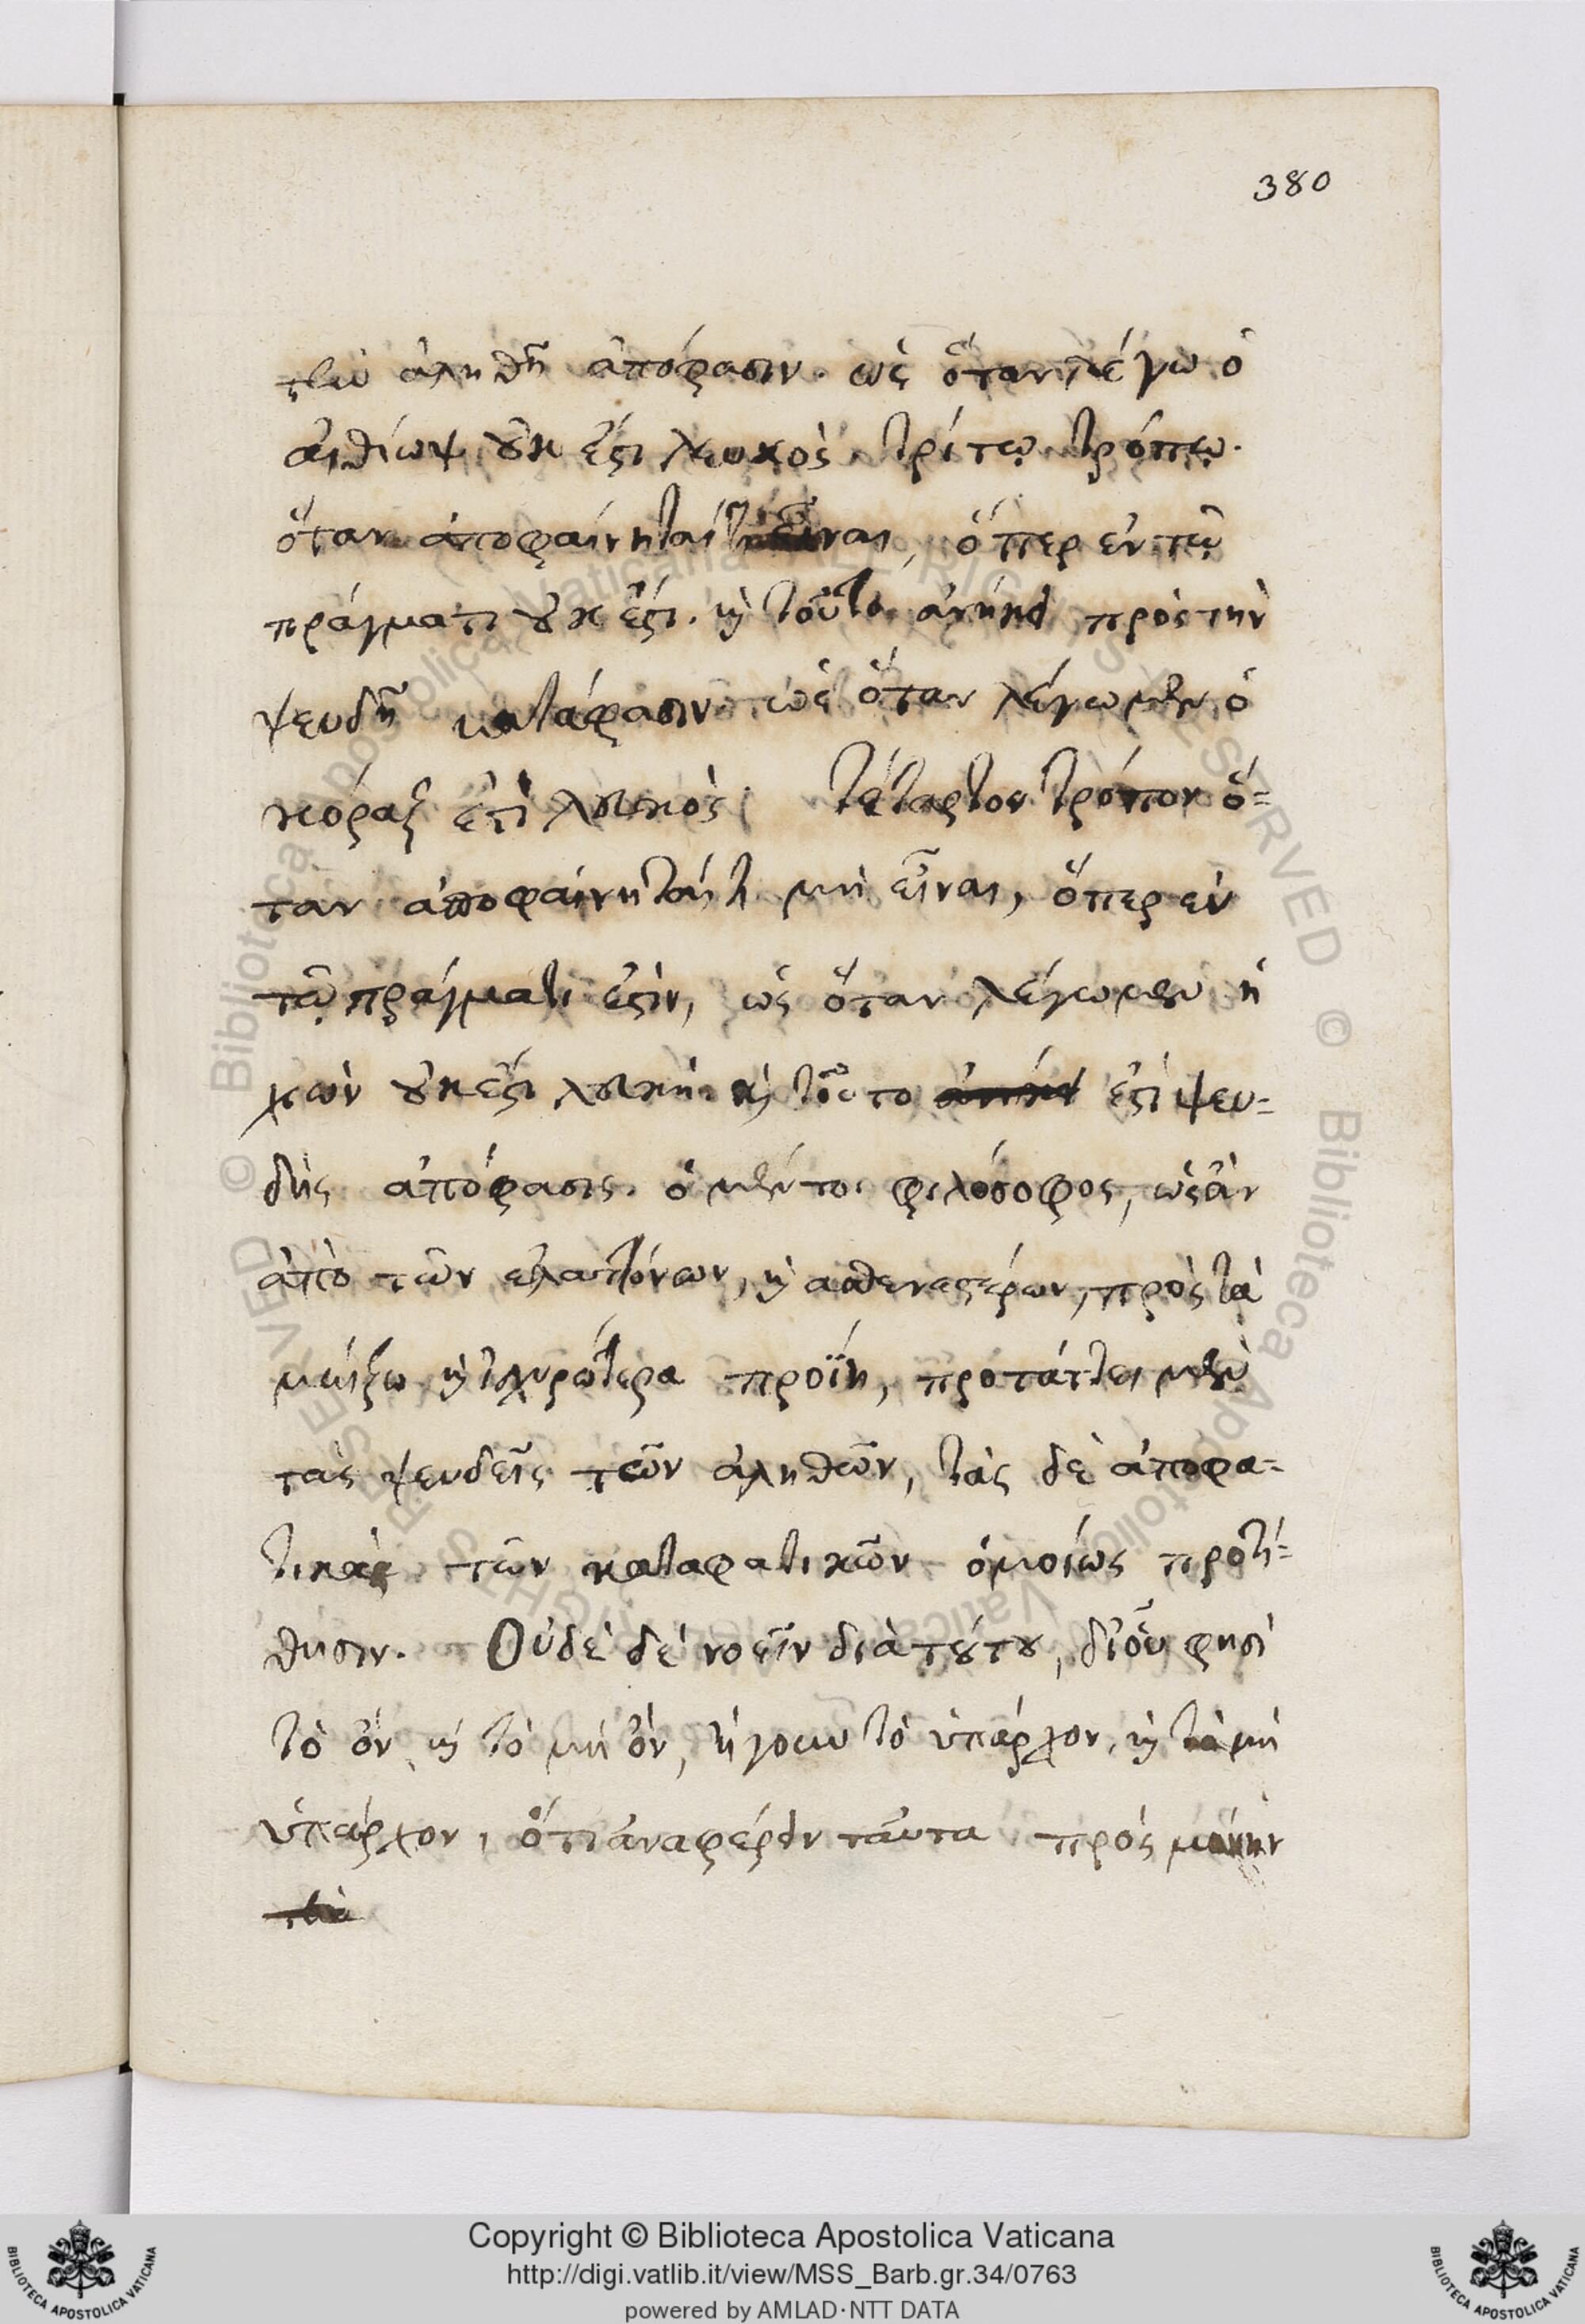 380
τὴν ἀληθῆ ἀπόφασιν. ὡς ὅταν λέγω ὁ
αἰθίωψ οὐκ ἔστι λευκὸς τρίτῳ τρόπῳ.
ὅταν ἀποφαίνηταί τι εἶναι, ὅπερ ἐν τῷ
πράγματι οὐκ ἔστι. καὶ τοῦτο ἀνήκει πρὸς τὴν
ψευδῆ κατάφασιν ὡς ὅταν λέγωμεν ὁ
κόραξ ἐστὶ λευκός. τέταρτον τρόπον ὅ=
ταν ἀποφαίνηταί τι μὴ εἶναι, ὅπερ ἐν
τῷ πράγματι ἐστὶν, ὡς ὅταν λέγωμεν ἡ
χιὼν οὐκ ἔστι λευκή. καὶ τοῦτο ἐστὶ ψευ=
δὴς ἀπόφασις. ὁ μέντοι φιλόσοφος, ὡς ἂν
ἀπὸ τῶν ἐλαττόνων, καὶ ἀσθενεστέρων, πρὸς τὰ
μείζω καὶ ἰσχυρότερα προΐῃ, προτάττει μὲν
τὰς ψευδεῖς τῶν ἀληθῶν, τὰς δὲ ἀποφα=
τικὰς τῶν καταφατικῶν ὁμοίως προτί=
θησιν. Οὐδὲ δὲ νοεῖν διὰ τούτου, δι' οὗ φησὶ
τὸ ὂν καὶ τὸ μὴ ὂν, ἤγουν τὸ ὑπάρχον, καὶ τὸ μὴ
ὑπάρχον, ὅτι ἀναφέρειν ταῦτα πρὸς μόνην
Copyright © Biblioteca Apostolica Vaticana
http://digi.vatlib.it/view/MSS_Barb.gr.34/0763
powered by AMLAD·NTT DATA